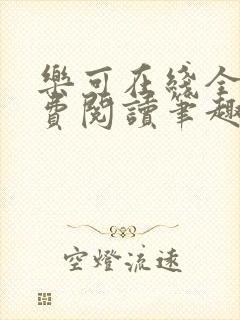 樂可在綫全
費閱讀筆趣
空燈流遠